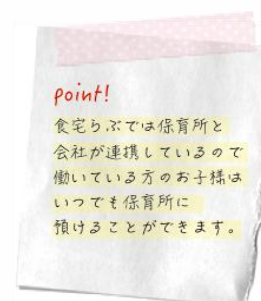 point!
食宅らぶでは保育所と
会社が連携しているので
働いている方のお子様は
いつでも保育所に
預けることができます。